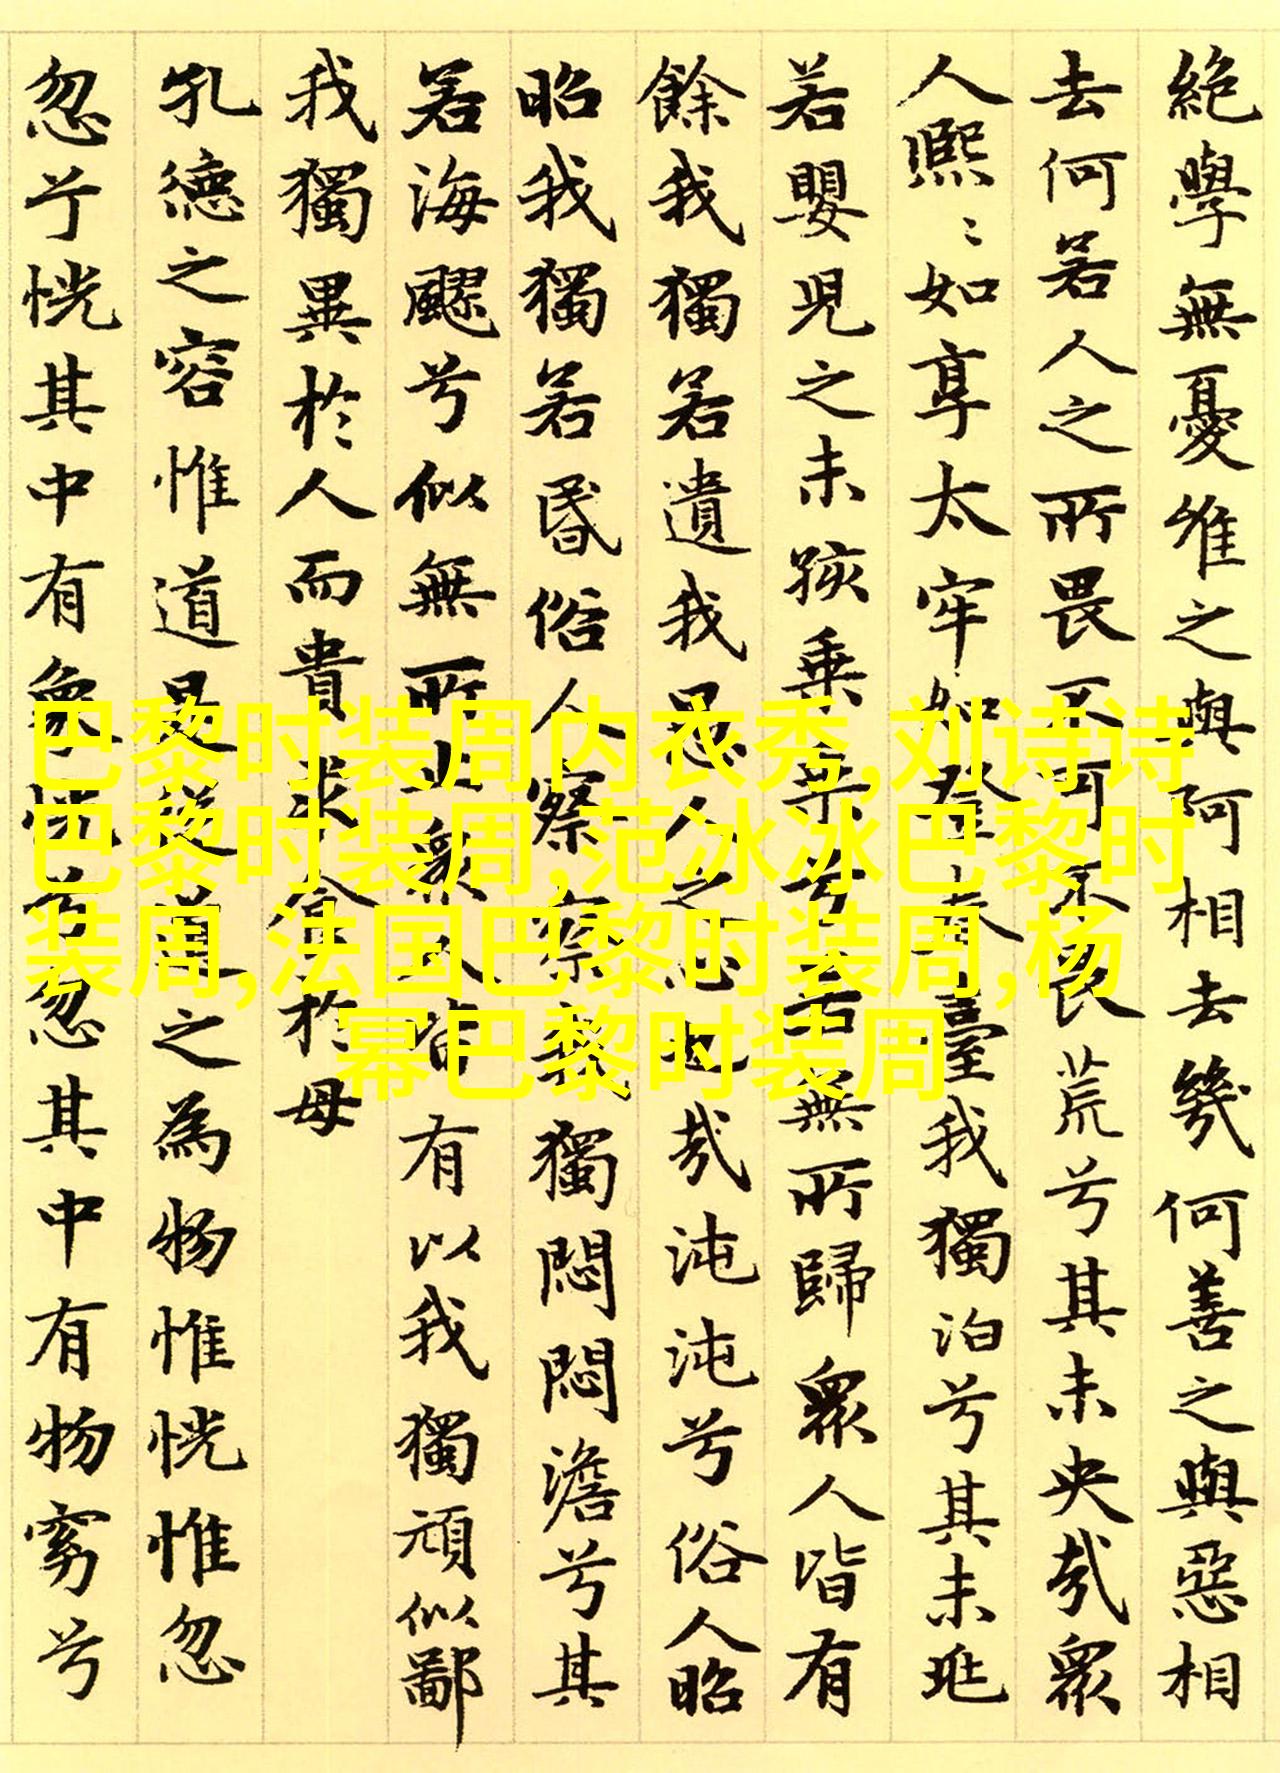 絶學無憂唯之與阿相去幾何善之與惡相
去何若人之所畏不可不畏荒兮其未央哉衆
人熙〻如享太牢如登春臺我獨泊兮其未兆
若嬰兒之未孩乗乗兮若無所歸衆人皆有
餘我獨若遺我愚人之心也哉沌沌兮俗人昭
昭我獨若昏俗人察察我獨悶悶澹兮其
若海飂兮似無所止衆人皆有以我獨頑似鄙
我獨異於人而貴求食於母
孔德之容惟道是從道之為物惟恍惟忽
忽兮恍其中有象恍兮忽其中有物窈兮
巴黎时装周内衣秀,刘诗诗
巴黎时装周,范冰冰巴黎时
装周,法国巴黎时装周,杨
幂巴黎时装周